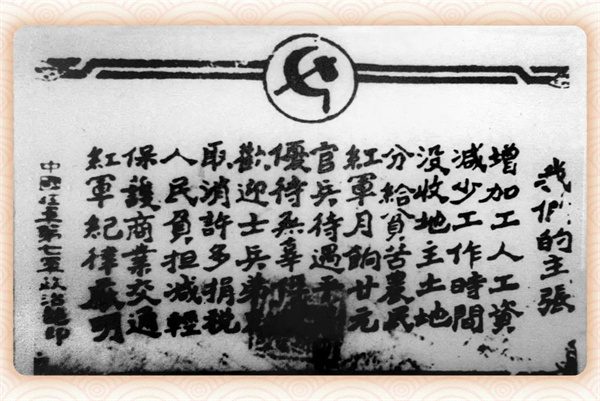 我們的主張
增加工人工資
減少工作時間
没收地主土地
分給貧苦農民
紅軍月餉廿元
官兵待遇平
優待無辜俘
歡迎士兵弟
取消許多捐税
人民負担減輕
保護商業交通
紅軍紀律嚴明
中國红軍第七軍政治部印